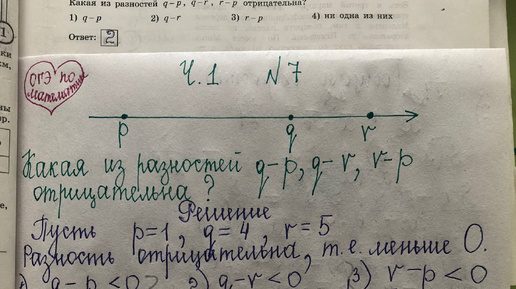 Какая из разностей q−p, q−r, r−p отрицательна?
1) q−p 2) q−r 3) r−p 4) ни одна из них
Ответ: 2
ОГЭ по математике
Ч.1 №7
p q r
Какая из разностей q−p, q−r, r−p
отрицательна?
Решение
Пусть p=1, q=4, r=5
Разность отрицательна, т.е. меньше 0.
1) q−p<0? 2) q−r<0 3) r−p<0